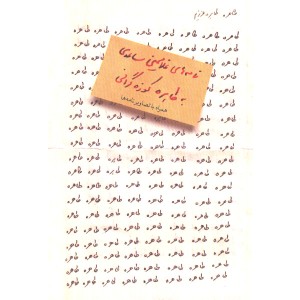 طاهره، طاهره عزیزم
طاهره طاهره طاهره طاهره طاهره طاهره طاهره طاهره
نامه‌های غلامحسین ساعدی
به طاهره کوزه‌گرانی
همراه با تصاویر نامه‌ها
طاهره طاهره طاهره طاهره طاهره طاهره طاهره طاهره
طاهره طاهره طاهره طاهره طاهره طاهره طاهره طاهره
طاهره طاهره طاهره طاهره طاهره طاهره طاهره طاهره
طاهره طاهره طاهره طاهره طاهره طاهره طاهره طاهره
طاهره طاهره طاهره طاهره طاهره طاهره طاهره طاهره
طاهره طاهره طاهره طاهره طاهره طاهره طاهره طاهره
طاهره طاهره طاهره طاهره طاهره طاهره طاهره طاهره
طاهره طاهره طاهره طاهره طاهره طاهره طاهره طاهره
طاهره طاهره طاهره طاهره طاهره طاهره طاهره طاهره